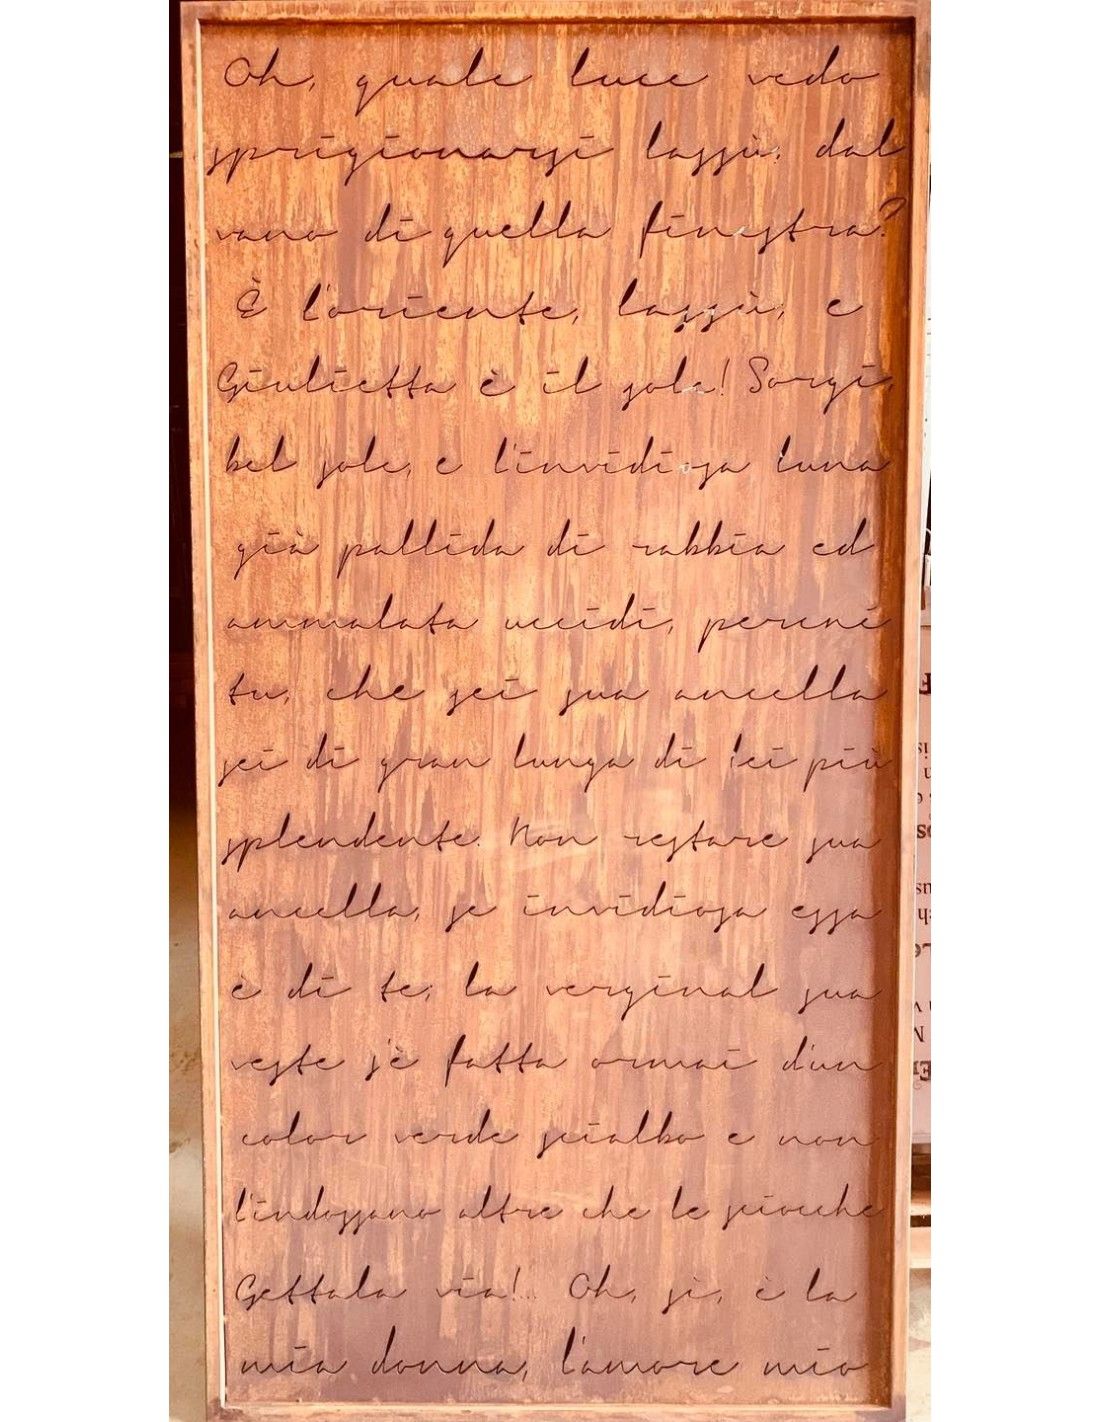 Oh, quale luce vedo
sprigionarsi lassù, dal
vano di quella finestra?
È l'oriente, lassù, e
Giulietta è il sole! Sorgi,
bel sole, e l'invidiosa luna
già pallida di rabbia ed
ammalata uccidi, perché
tu, che sei sua ancella
sei di gran lunga di lei più
splendente. Non restare sua
ancella, se invidiosa essa
è di te; la verginal sua
veste s'è fatta ormai d'un
color verde scialbo e non
l'indossano altre che le sciocche
Gettala via!.. Oh, sì, è la
mia donna, l'amore mio